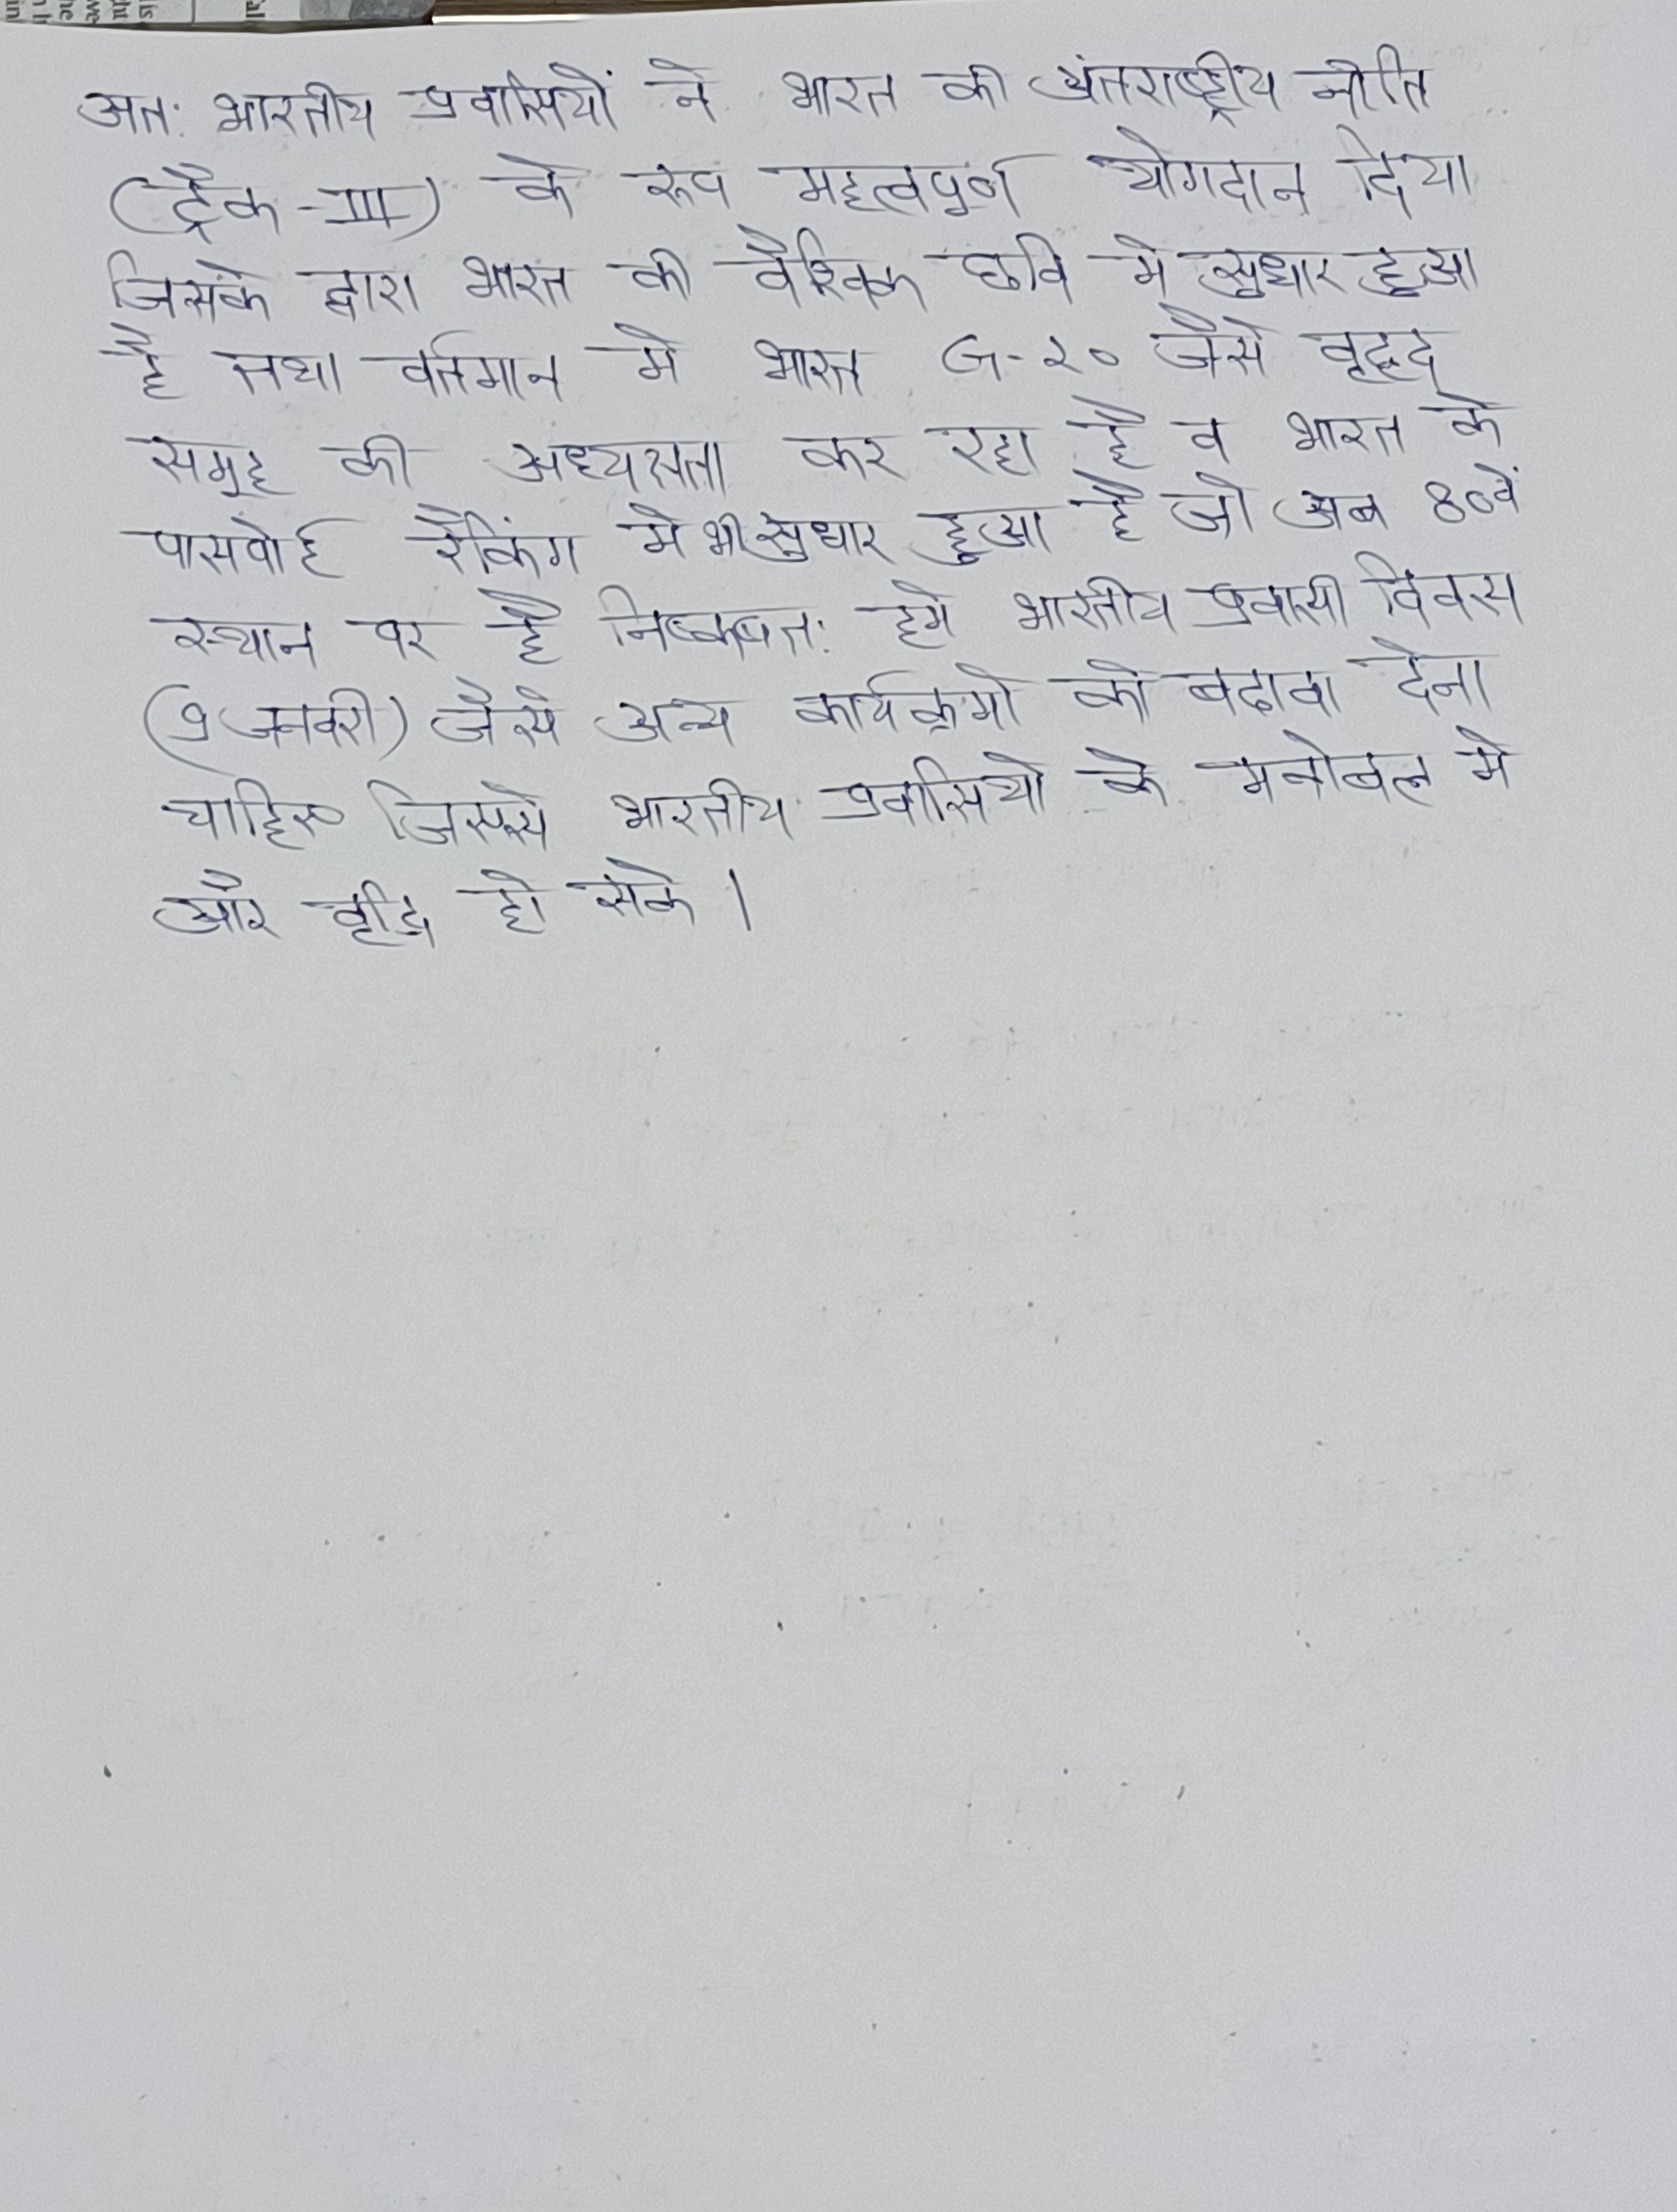 अतः भारतीय प्रवासियों ने भारत की अंतराष्ट्रीय नीति
(ट्रैक-III) के रूप महत्वपुर्ण योगदान दिया
जिसके द्वारा भारत की वैश्विक छवि मे सुधार हुआ
है तथा वर्तमान मे भारत G-२० जैसे वृहद
समूह की अध्यक्षता कर रहा है व भारत के
पासपोर्ट रैंकिंग मे भी सुधार हुआ है जो अब 80वें
स्थान पर है निष्कषतः हमे भारतीय प्रवासी दिवस
(9 जनवरी) जैसे अन्य कार्यक्रमो को बढ़ावा देना
चाहिए जिससे भारतीय प्रवासियो के मनोबल मे
और वृद्धि हो सके ।